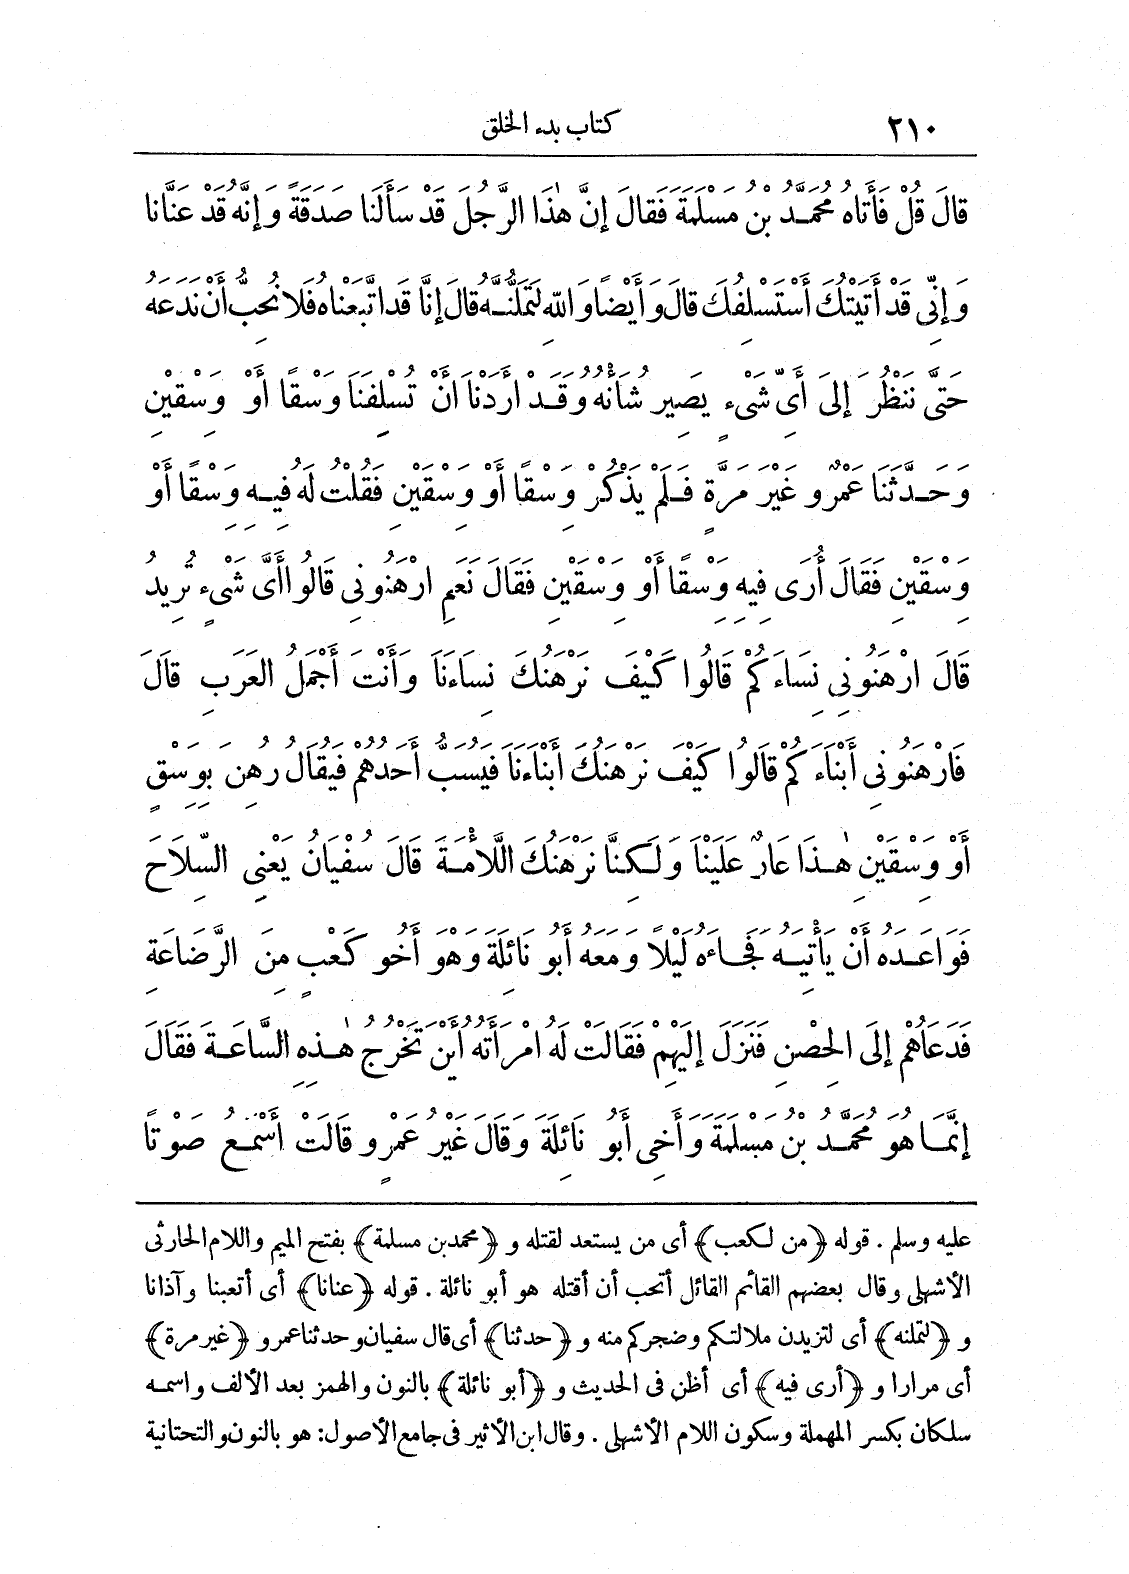 ٢١٠ كتاب بدء الخلق
قَالَ قُلْ فَأَتَاهُ مُحَمَّدُ بْنُ مَسْلَمَةَ فَقَالَ إِنَّ هٰذَا الرَّجُلَ قَدْ سَأَلَنَا صَدَقَةً وَإِنَّهُ قَدْ عَنَّانَا
وَإِنِّي قَدْ أَتَيْتُكَ أَسْتَسْلِفُكَ قَالَ وَأَيْضًا وَاللهِ لَتَمَلُّنَّهُ قَالَ إِنَّا قَدِ اتَّبَعْنَاهُ فَلَا نُحِبُّ أَنْ نَدَعَهُ
حَتَّى نَنْظُرَ إِلَى أَيِّ شَيْءٍ يَصِيرُ شَأْنُهُ وَقَدْ أَرَدْنَا أَنْ تُسْلِفَنَا وَسْقًا أَوْ وَسْقَيْنِ
وَحَدَّثَنَا عَمْرٌو غَيْرَ مَرَّةٍ فَلَمْ يَذْكُرْ وَسْقًا أَوْ وَسْقَيْنِ فَقُلْتُ لَهُ فِيهِ وَسْقًا أَوْ
وَسْقَيْنِ فَقَالَ أُرَى فِيهِ وَسْقًا أَوْ وَسْقَيْنِ فَقَالَ نَعَمِ ارْهَنُونِي قَالُوا أَيَّ شَيْءٍ تُرِيدُ
قَالَ ارْهَنُونِي نِسَاءَكُمْ قَالُوا كَيْفَ نَرْهَنُكَ نِسَاءَنَا وَأَنْتَ أَجْمَلُ العَرَبِ قَالَ
فَارْهَنُونِي أَبْنَاءَكُمْ قَالُوا كَيْفَ نَرْهَنُكَ أَبْنَاءَنَا فَيُسَبُّ أَحَدُهُمْ فَيُقَالُ رُهِنَ بِوَسْقٍ
أَوْ وَسْقَيْنِ هٰذَا عَارٌ عَلَيْنَا وَلَكِنَّا نَرْهَنُكَ اللَّأْمَةَ قَالَ سُفْيَانُ يَعْنِي السِّلَاحَ
فَوَاعَدَهُ أَنْ يَأْتِيَهُ فَجَاءَهُ لَيْلًا وَمَعَهُ أَبُو نَائِلَةَ وَهْوَ أَخُو كَعْبٍ مِنَ الرَّضَاعَةِ
فَدَعَاهُمْ إِلَى الحِصْنِ فَنَزَلَ إِلَيْهِمْ فَقَالَتْ لَهُ امْرَأَتُهُ أَيْنَ تَخْرُجُ هٰذِهِ السَّاعَةَ فَقَالَ
إِنَّمَا هُوَ مُحَمَّدُ بْنُ مَسْلَمَةَ وَأَخِي أَبُو نَائِلَةَ وَقَالَ غَيْرُ عَمْرٍو قَالَتْ أَسْمَعُ صَوْتًا
عليه وسلم . قوله ﴿من لكعب﴾ أى من يستعد لقتله و ﴿محمد بن مسلمة﴾ بفتح الميم واللام الحارثى
الأشهلى وقال بعضهم القائم القائل أتحب أن أقتله هو أبو نائلة . قوله ﴿عنانا﴾ أى أتعبنا وآذانا
و ﴿لتملنه﴾ أى لتزيدن ملالتكم وضجركم منه و ﴿حدثنا﴾ أى قال سفيان وحدثنا عمرو ﴿غير مرة﴾
أى مرارا و ﴿أرى فيه﴾ أى أظن فى الحديث و ﴿أبو نائلة﴾ بالنون والهمز بعد الألف واسمه
سلكان بكسر المهملة وسكون اللام الأشهلى . وقال ابن الأثير فى جامع الأصول: هو بالنون والتحتانية